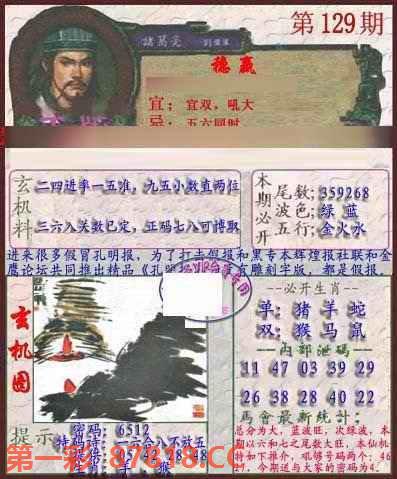 第129期
諸葛亮
穩贏
宜；宜双，吼大
忌；五六同时
玄机料
二四进率一五唯，九五小数直两位
三六八关数已定，正码七八可搏取
本期必开
尾数;359268
波色;绿 蓝
五行;金火水
进来很多假冒孔明报，为了打击假报和黑专本辉煌报社联和金
鹰论坛共同推出精品《孔明
有雕刻字版，都是假报。
玄机图
--必开生肖--
单:猪羊蛇
双:猴马鼠
--内部泄码--
11 47 03 39 49 29
26 38 28 40 20 22
马會最新統计:
总分为大，蓝波旺，次绿波，本
期以六和七之尾数大旺，本仙机
特如下推介，吼够号码两个：46
27，今期送与大家的密码为4.
提示
密码: 6512
特码诗:一六合八不放五
42 28 48
第一彩 87818.CC